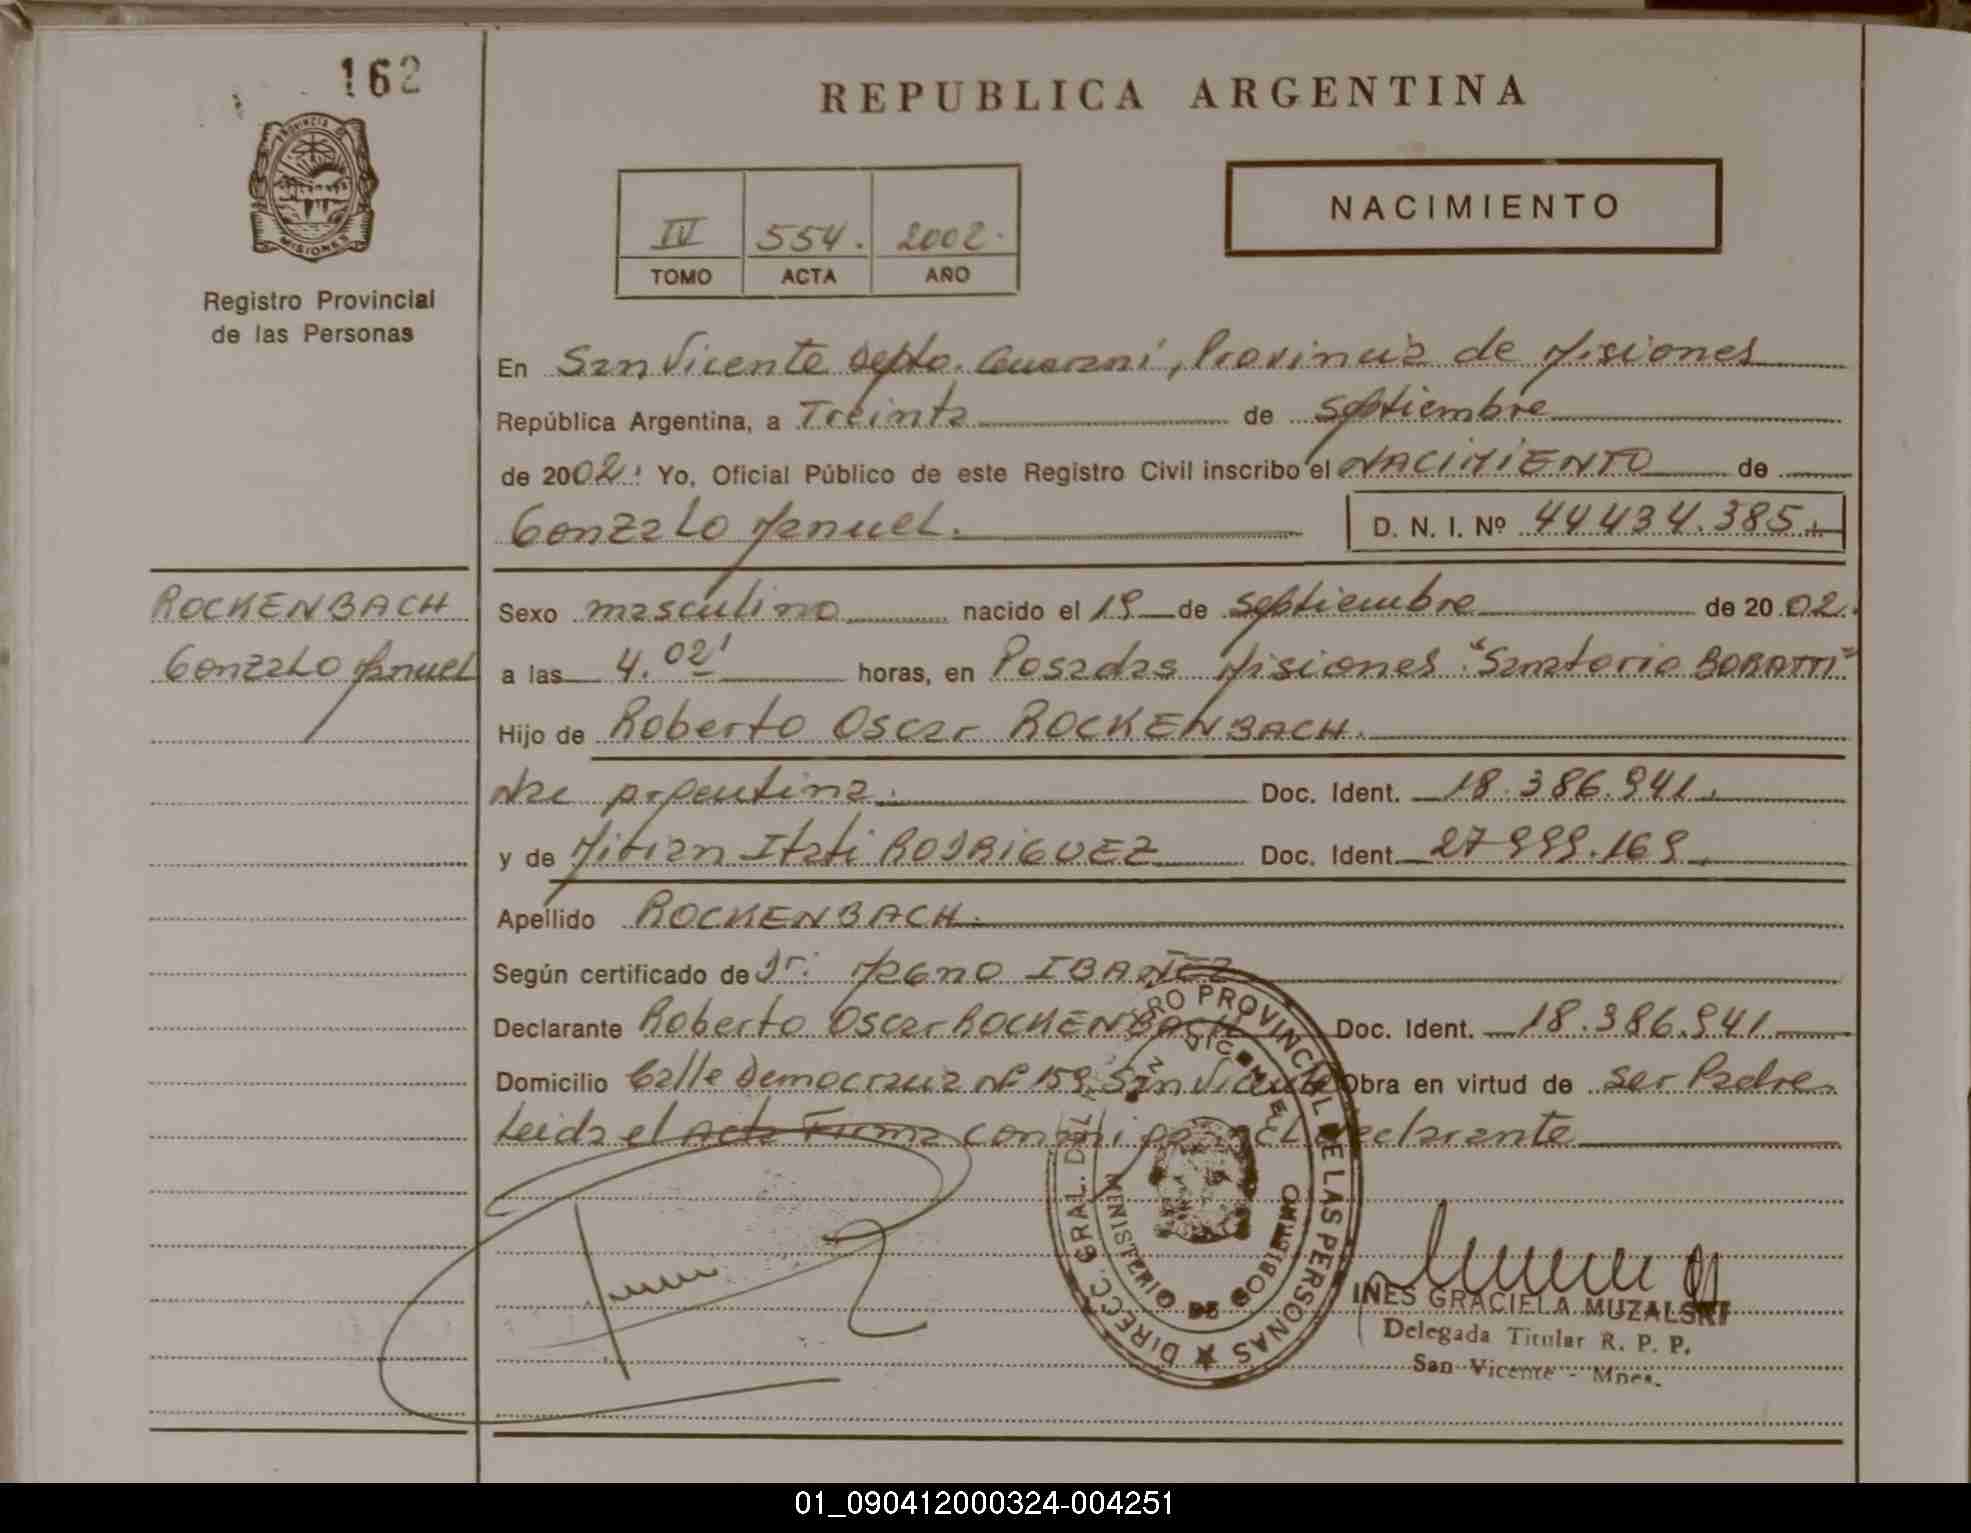 162
PROVINCIA DE
MISIONES
Registro Provincial
de las Personas
REPUBLICA ARGENTINA
IV 554. 2002.
TOMO ACTA AÑO
NACIMIENTO
En San Vicente Depto. Guaraní, Provincia de Misiones
República Argentina, a Treinta de Septiembre
de 2002. Yo, Oficial Público de este Registro Civil inscribo el NACIMIENTO de
Gonzalo Manuel. D. N. I. Nº 44434.385.
ROCKENBACH
Gonzalo Manuel
Sexo masculino nacido el 19 de Septiembre de 2002.
a las 4.02' horas, en Posadas Misiones "Sanatorio BORATTI"
Hijo de Roberto Oscar ROCKENBACH.
Nac argentina. Doc. Ident. 18.386.941.
y de Mirian Itati RODRIGUEZ Doc. Ident. 27999.169.
Apellido ROCKENBACH.
Según certificado de Dr: IBAÑEZ
Declarante Roberto Oscar ROCKENBACH Doc. Ident. 18.386.941.
Domicilio Calle Democracia Nº 159. San Vicente Obra en virtud de ser Padre.
Leida el Acta Firma con mi go El Declarante
DIRECC. GRAL. DEL REGISTRO PROVINCIAL DE LAS PERSONAS
SAN VICENTE
MINISTERIO DE GOBIERNO
INES GRACIELA MUZALSKI
Delegada Titular R. P. P.
San Vicente - Mnes.
01_090412000324-004251